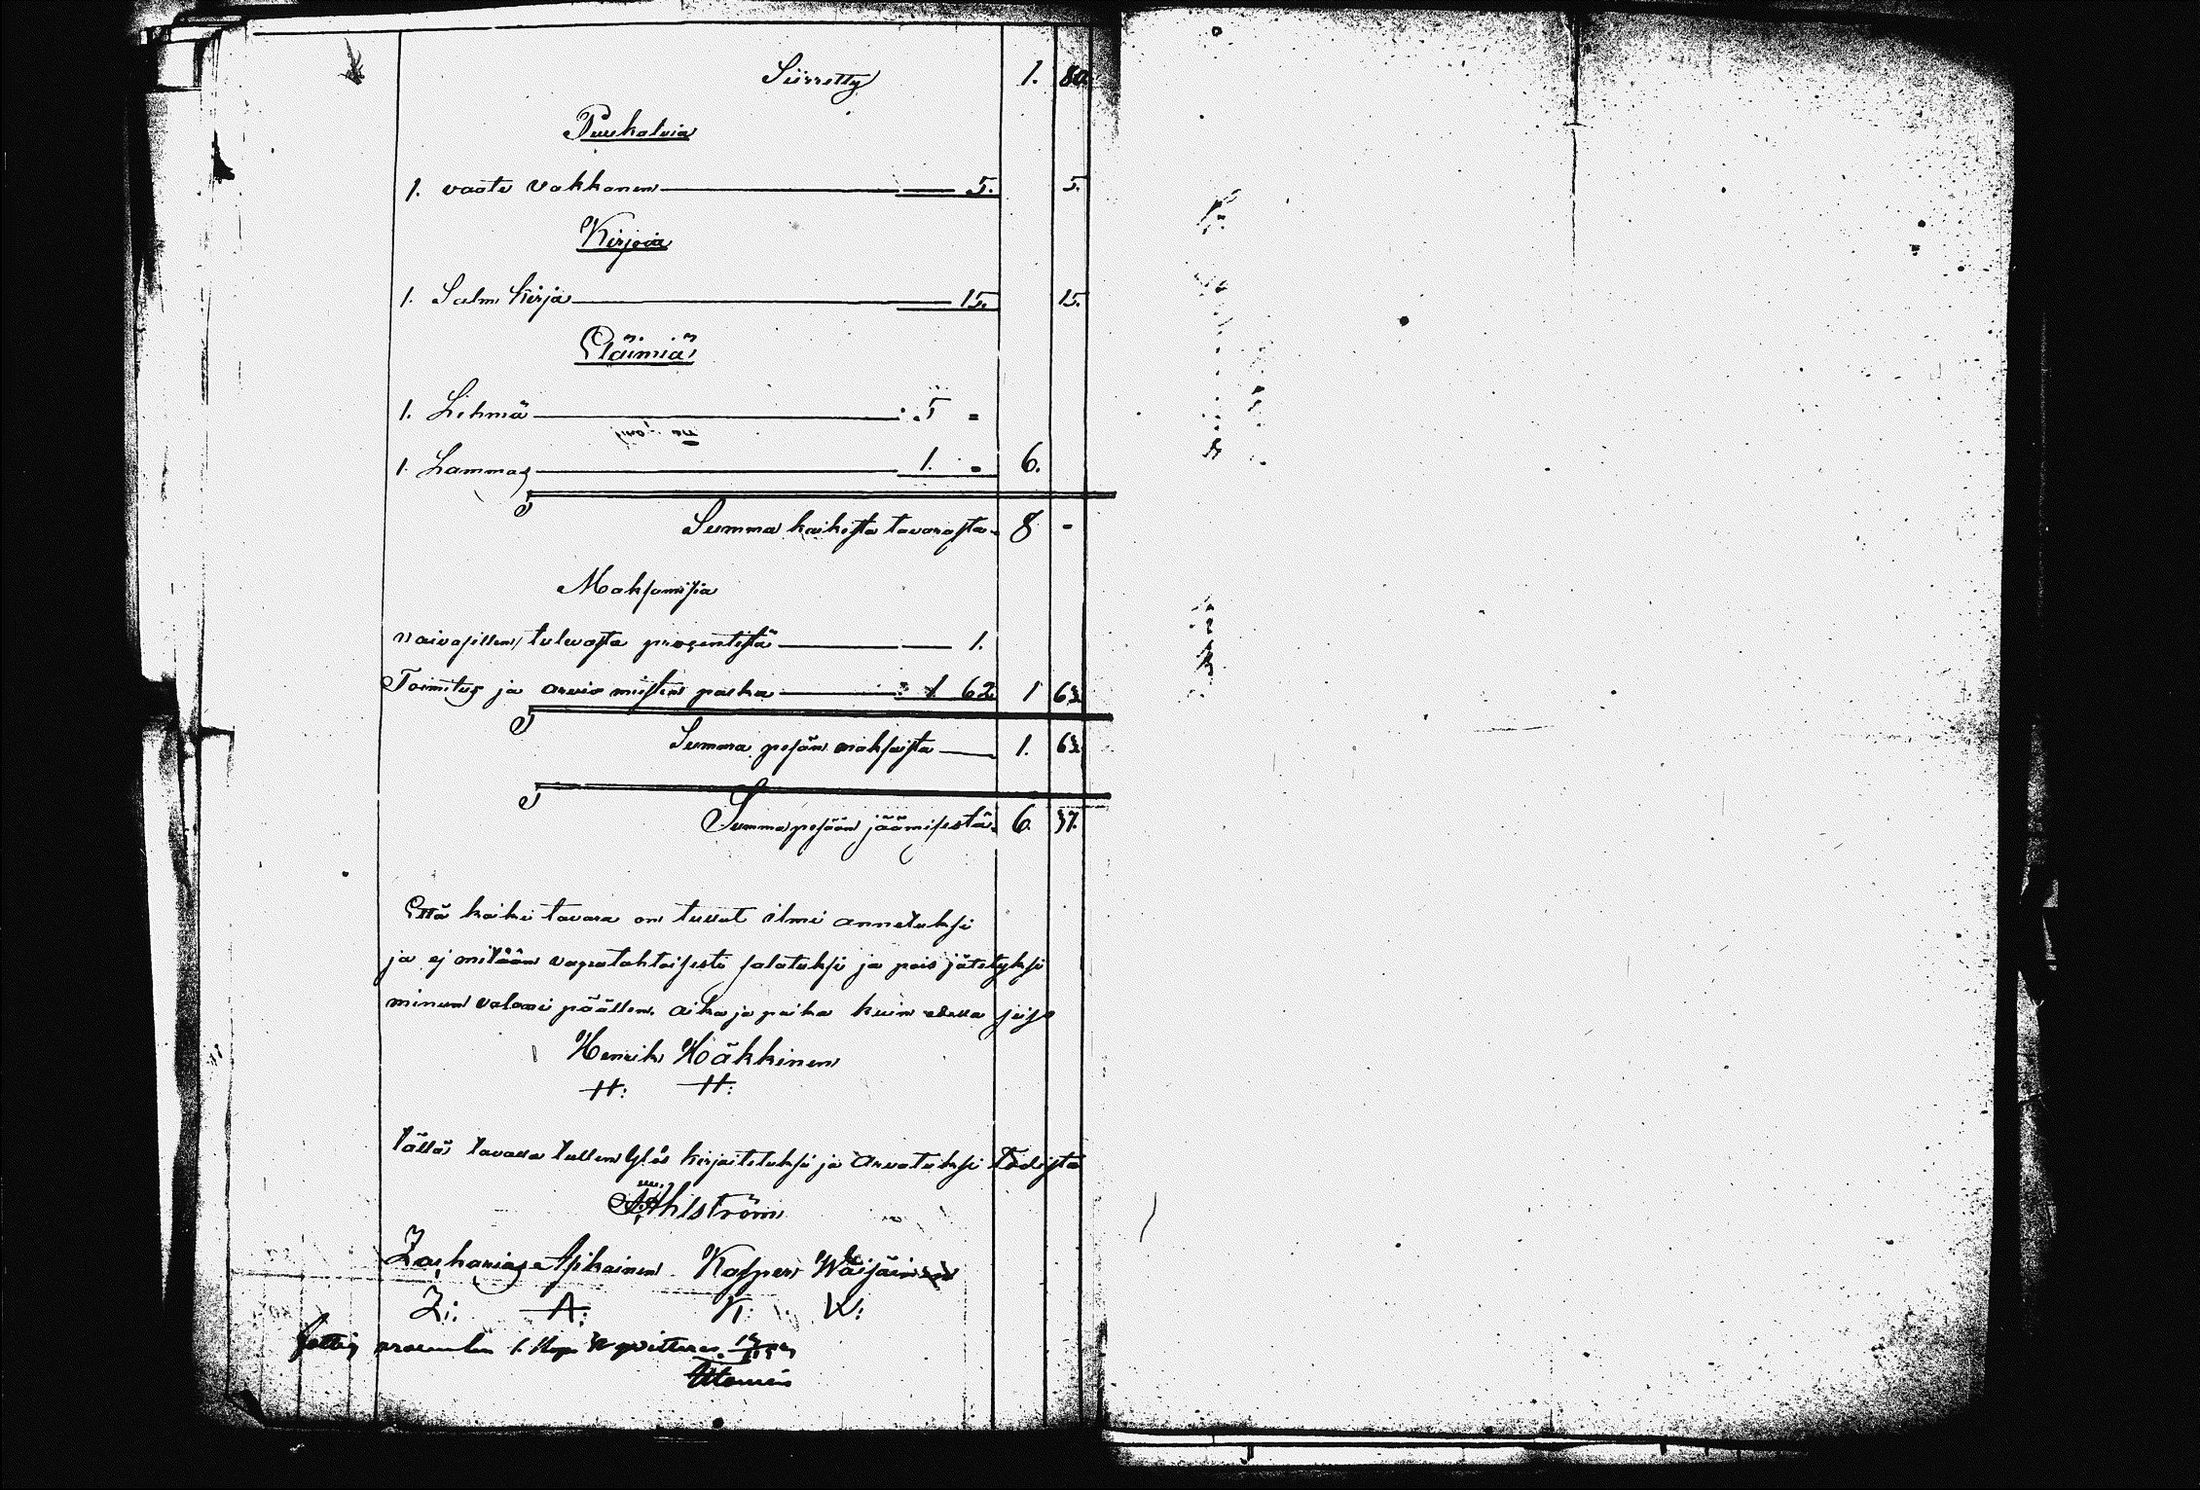 Siirretty 1. 80.
Puukaluia
1. vaate vakkanen 5. 5.
Kirjoia
1. Salm kirja 15. 15.
Eläimiä
1. Lehmä 5 =
1. Lammas 1. = 6.
Summa kaikesta tavarasta 8 -
Maksamisia
vaivasillen tulevasta prosentista 1.
Toimitus ja arvio miesten palka 1 62 1 63
Summa pesän maksuista 1. 63
Summa pesään jäämisestä 6. 37.
Että kaiki tavara on tullut ilmi annetuksi
ja ej mitään vapatahtoisesti salatuksi ja pois jätetyksi
minun valani päällen, aika ja paika kuin edellä seiso
Henrik Häkkinen
H: H:
tällä tavalla tullen ylös kirjoitetuksi ja Arvatuksi Todista
Ahlström
Zacharias Asikainen Kasper Wäisäinen
Z: A: K: W:
fattig procenten 1 kop